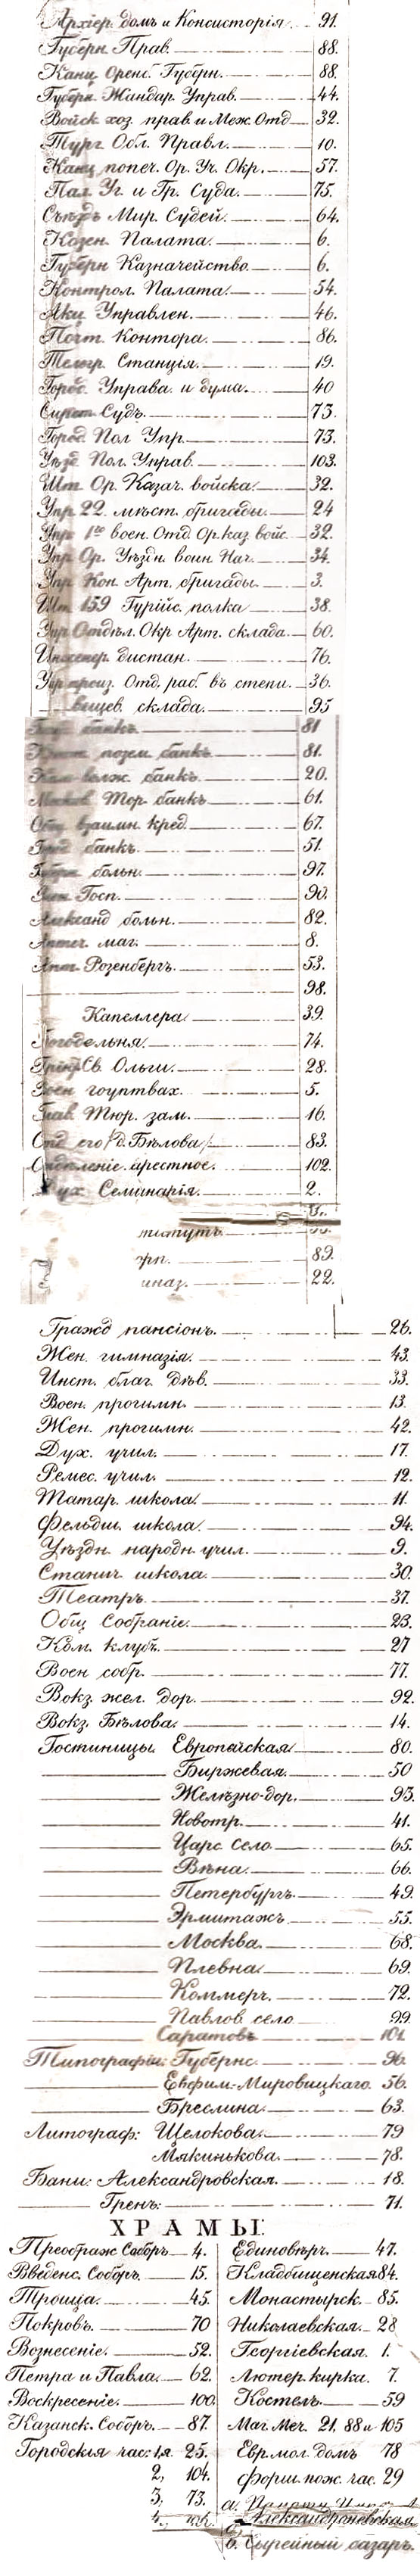 Архіер. домъ и Консисторія. 91.
Губерн. Прав. 88.
Канц. Оренб. Губерн. 88.
Губерн. Жандар. Управ. 44.
Войск. хоз. прав. и Меж. Отд. 32.
Тург. Обл. Правл. 10.
Канц. попеч. Ор. Уч. Окр. 57.
Пал. Уг. и Гр. Суда. 75.
Съѣздъ Мир. Судей. 64.
Казен. Палата. 6.
Губерн. Казначейство. 6.
Контрол. Палата. 54.
Акц. Управлен. 46.
Почт. Контора. 86.
Телегр. Станція. 19.
Город. Управа. и дума. 40
Сирот. Судъ. 73.
Город. Пол. Упр. 73.
Уѣзд. Пол. Управ. 103.
Шт. Ор. Казач. войска. 32.
Упр. 22. мѣст. бригады. 24
Упр. 1го воен. Отд. Ор. каз. войс. 32.
Упр. Ор. Уѣздн. воин. Нач. 34.
Упр. Кон. Арт. бригады. 3.
Шт. 159 Гурійс. полка 38.
Упр. Отдѣл. Окр. Арт. склада. 60.
Инженер. дистан. 76.
Упр. произ. Отд. раб. въ степи. 36.
вещев. склада. 95
банкъ. 81
позем. банкъ. 81.
волж. банкъ. 20.
Москов. Тор. банкъ 61.
Общ. взаимн. кред. 67.
банкъ. 51.
Губерн. больн. 97.
Воен. Госп. 90.
Александ. больн. 82.
Аптеч. маг. 8.
Апт. Розенбергъ. 53.
98.
Капеллера. 39.
Богодѣльня. 74.
Пріютъ Св. Ольги. 28.
Воен. гоуптвах. 5.
Глав. Тюр. зам. 16.
Отд. его /д. Бѣлова/ 83.
Отдѣленіе арестное. 102.
Дух. Семинарія. 2.
титутъ.
рп. 89.
мназ. 22.
Гражд. пансіонъ. 26.
Жен. гимназія. 43.
Инст. благ. дѣв. 33.
Воен. прогимн. 13.
Жен. прогимн. 42.
Дух. учил. 17.
Ремес. учил. 12.
Татар. школа. 11.
Фельдш. школа. 94.
Уѣздн. народн. учил. 9.
Станич. школа. 30.
Театръ. 37.
Общ. Собраніе. 23.
Ком. клубъ. 27
Воен. собр. 77.
Вокз. жел. дор. 92.
Вокз. Бѣлова. 14.
Гостиницы. Европейская. 80.
Биржевая. 50
Желѣзно-дор. 93.
Новотр. 41.
Царс. Село. 65.
Вѣна. 66.
Петербургъ. 49.
Эрмитажъ. 55.
Москва. 68.
Плевна. 69.
Коммерч. 72.
Павлов. село. 99.
Саратовъ. 101.
Типографіи: Губернс. 96.
Евфим.-Мировицкаго. 56.
Бреслина. 63.
Литограф: Щелокова. 79
Мякинькова. 78.
Бани: Александровская. 18.
Гренъ: 71.
ХРАМЫ:
Преображ. Соборъ 4.
Введенс. Соборъ. 15.
Троица. 45.
Покровъ. 70
Вознесеніе. 52.
Петра и Павла. 62.
Воскресеніе. 100.
Казанск. Соборъ. 87.
Городскія час: 1я. 25.
2, 104.
3, 73.
4,
Единовѣрч. 47.
Кладбищенская 84.
Монастырск. 85.
Николаевская. 28
Георгіевская. 1.
Лютер. кирка. 7.
Костелъ. 59
Маг. Меч. 21. 88 и 105
Евр. мол. домъ 78
Форш. пож. час. 29
а.
Александроневская.
б. Сырейный базаръ.